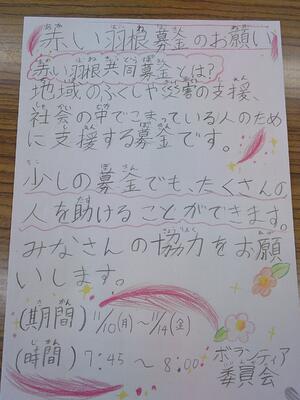 赤い羽根募金のお願い
赤い羽根共同募金とは?
地域のふくしや災害の支援、
社会の中でこまっている人のため
に支援する募金です。
少しの募金でも、たくさんの
人を助けることができます。
みなさんの協力をお願
いします。
(期間) 11/10(月)~11/14(金)
(時間) 7:45 ~ 8:00
ボランティア
委員会